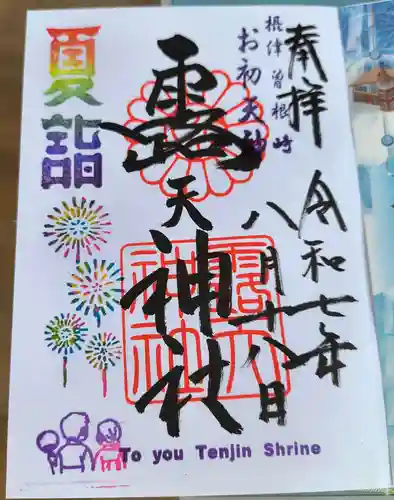 奉拝
令和七年
八月十八日
摂津曽根崎
お初天神
露天神社
夏詣
To you Tenjin Shrine